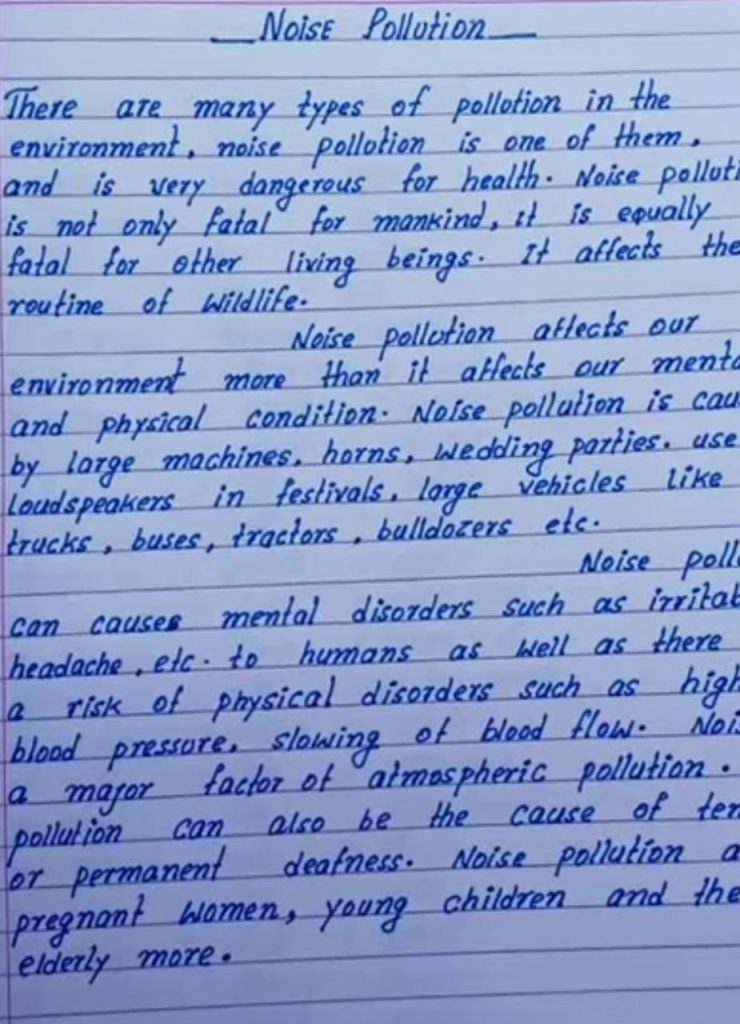 Noise Pollution
There are many types of pollution in the
environment, noise pollution is one of them,
and is very dangerous for health. Noise polluti
is not only fatal for mankind, it is equally
fatal for other living beings. It affects the
routine of Wildlife.
Noise pollution affects our
environment more than it affects our menta
and physical condition. Noise pollution is cau
by large machines, horns, wedding parties. use
loudspeakers in festivals, large vehicles like
trucks, buses, tractors, bulldozers etc.
Noise poll
can causes mental disorders such as irritab
headache, etc. to humans as well as there
a risk of physical disorders such as high
blood pressure, slowing of blood flow. Nois
a major factor of atmospheric pollution.
pollution can also be the cause of tem
or permanent deafness. Noise pollution a
pregnant women, young children and the
elderly more.